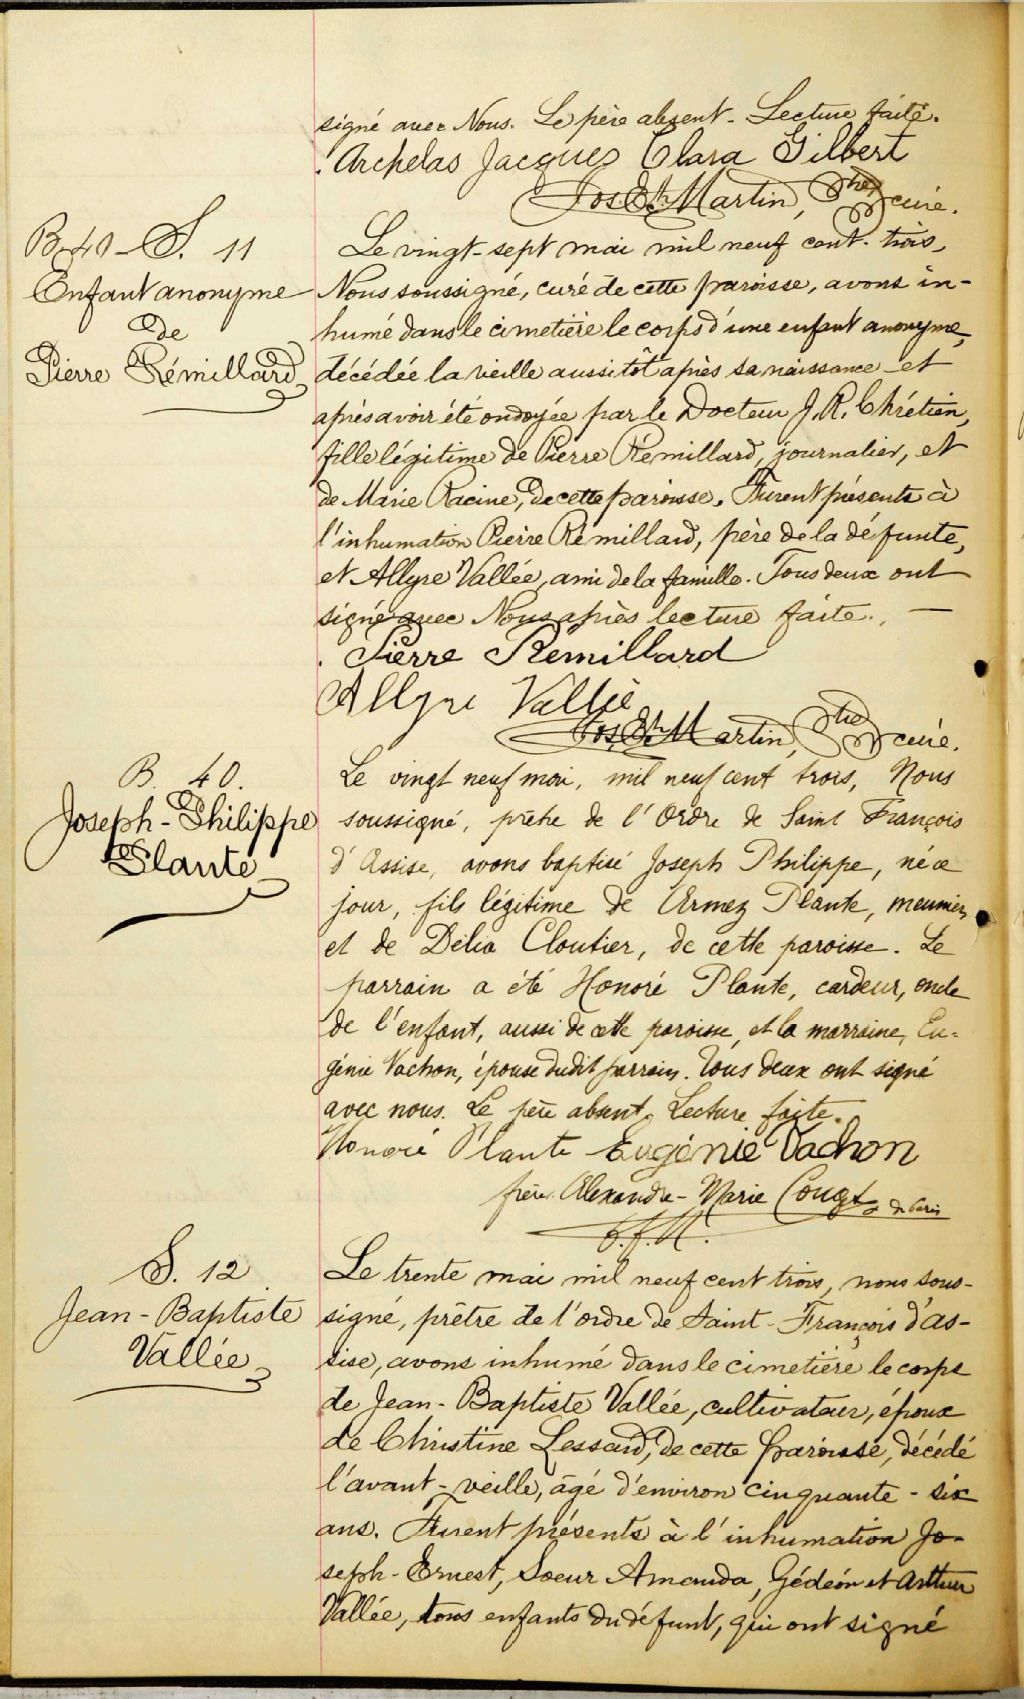 signé avec Nous. Le père absent - Lecture faite.
Archelas Jacques Clara Gilbert
Jos. Et. Martin, Ptre curé.
B-40 - S. 11
Enfant anonyme
de
Pierre Rémillard
Le vingt-sept mai mil neuf cent-trois,
Nous soussigné, curé de cette paroisse, avons in-
humé dans le cimetière le corps d'une enfant anonyme,
décédée la vieille aussitôt après sa naissance et
après avoir été ondoyée par le Docteur J. R. Chrétien,
fille légitime de Pierre Rémillard, journalier, et
de Marie Racine, de cette paroisse. Furent présents à
l'inhumation Pierre Rémillard, père de la défunte,
et Allyre Vallée, ami de la famille. Tous deux ont
signé avec Nous après lecture faite. —
Pierre Remillard
Allyre Vallié
Jos. Et. Martin, Ptre curé.
B. 40.
Joseph-Philippe
Plante
Le vingt neuf mai, mil neuf cent trois, Nous
soussigné, prêtre de l'Ordre de Saint François
d'Assise, avons baptisé Joseph Philippe, né ce
jour, fils légitime de Armez Plante, meunier,
et de Délia Cloutier, de cette paroisse. Le
parrain a été Honoré Plante, cardeur, oncle
de l'enfant, aussi de cette paroisse, et la marraine, Eu-
génie Vachon, épouse dudit parrain. Tous deux ont signé
avec nous. Le père absent. Lecture faite.
Honoré Plante Eugénie Vachon
frère Alexandre-Marie de Paris
o. f. M.
S. 12
Jean-Baptiste
Vallée
Le trente mai mil neuf cent trois, nous sous-
signé, prêtre de l'ordre de Saint-François d'as-
sise, avons inhumé dans le cimetière le corps
de Jean-Baptiste Vallée, cultivateur, époux
de Christine Lessard, de cette paroisse, décédé
l'avant-veille, âgé d'environ cinquante-six
ans. Furent présents à l'inhumation Jo-
seph-Ernest, Soeur Amanda, Gédéon et Arthur
Vallée, tous enfants du défunt, qui ont signé